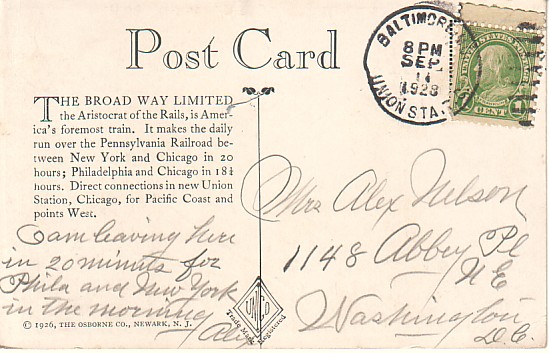 Post Card
BALTIMORE
8 PM
SEP
11
1928
UNION STA.
UNITED STATES POSTAGE
1 CENT 1
THE BROAD WAY LIMITED
the Aristocrat of the Rails, is Amer-
ica's foremost train. It makes the daily
run over the Pennsylvania Railroad be-
tween New York and Chicago in 20
hours; Philadelphia and Chicago in 18¼
hours. Direct connections in new Union
Station, Chicago, for Pacific Coast and
points West.
I am leaving here
in 20 minuts for
Phila and New York
in the morning
Alex
© 1926, THE OSBORNE CO., NEWARK, N. J.
UNICO
Trade Mark Registered
Mrs Alex Nelson
1148 Abbey Pl
N E
Washington
D.C.